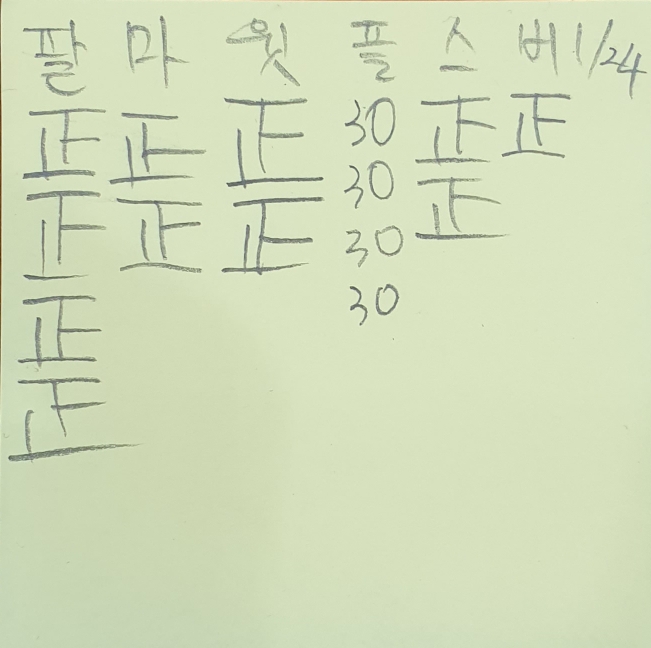 팔 마 윗 플 스 버 1/24
正 正 正 30 正 正
正 正 正 30 正
正 30
正 30